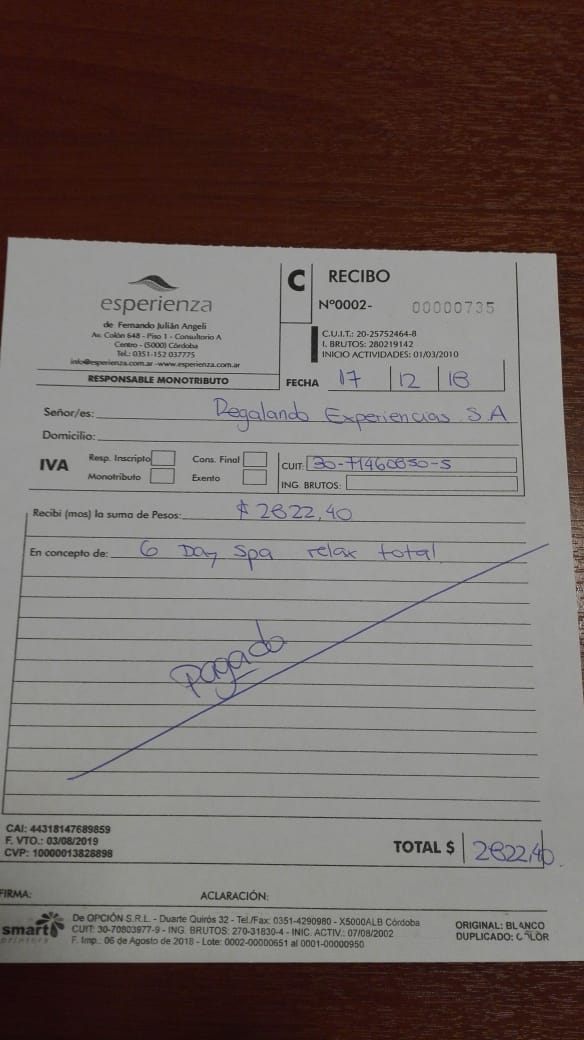 esperienza
de Fernando Julián Angeli
Av. Colón 648 - Piso 1 - Consultorio A
Centro - (5000) Córdoba
Tel.: 0351-152 037775
info@esperienza.com.ar -www.esperienza.com.ar
RESPONSABLE MONOTRIBUTO
C
RECIBO
Nº0002- 00000735
C.U.I.T.: 20-25752464-8
I. BRUTOS: 280219142
INICIO ACTIVIDADES: 01/03/2010
FECHA 17 12 18
Señor/es: Regalando Experiencias S.A
Domicilio:
IVA
Resp. Inscripto Cons. Final
Monotributo Exento
CUIT: 30-71460850-5
ING. BRUTOS:
Recibí (mos) la suma de Pesos: $ 2822,40
En concepto de: 6 Day Spa relax total
Pagado
CAI: 44318147689859
F. VTO.: 03/08/2019
CVP: 10000013828898
TOTAL $ 2822,40
FIRMA: ACLARACIÓN:
smart
printery
De OPCIÓN S.R.L. - Duarte Quirós 32 - Tel./Fax: 0351-4290980 - X5000ALB Córdoba
CUIT: 30-70803977-9 - ING. BRUTOS: 270-31830-4 - INIC. ACTIV.: 07/08/2002
F. Imp.: 06 de Agosto de 2018 - Lote: 0002-00000651 al 0001-00000950
ORIGINAL: BLANCO
DUPLICADO: COLOR